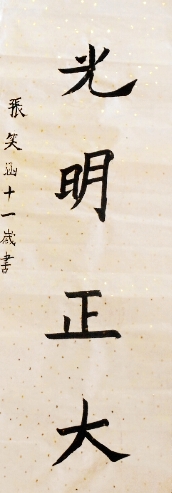 光明正大
張笑涵十一歲書